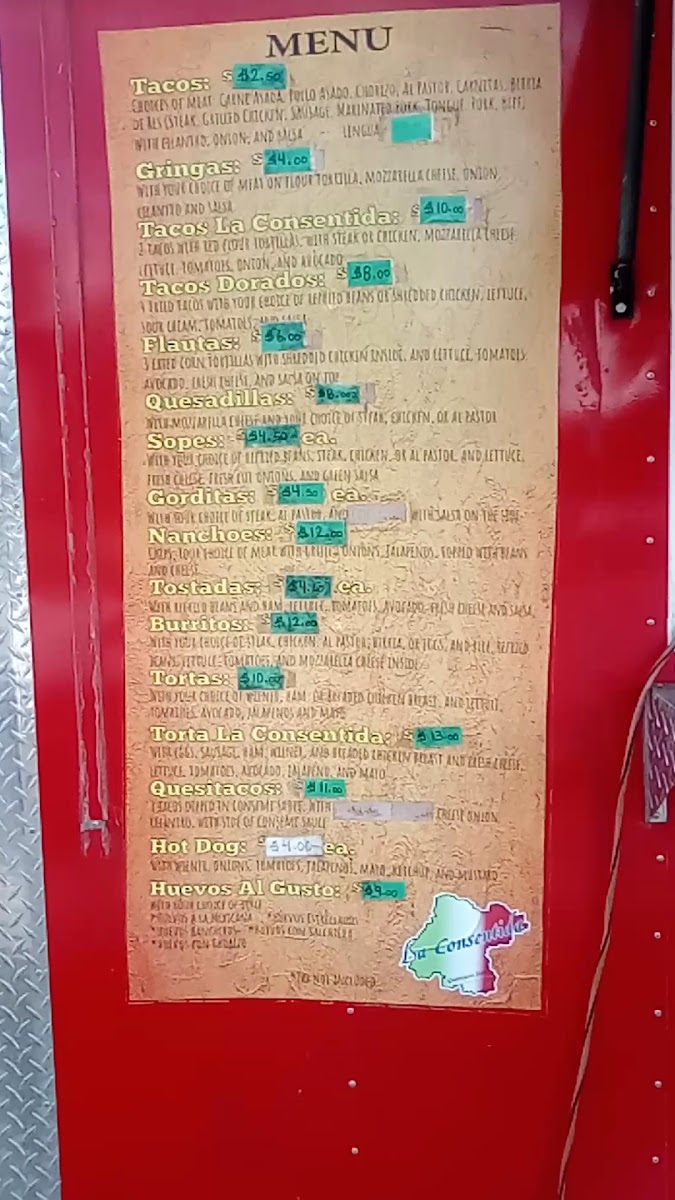 MENU
Tacos: $ $2.50
CHOICES OF MEAT: CARNE ASADA, POLLO ASADO, CHORIZO, AL PASTOR, CARNITAS, BIRRIA
DE RES (STEAK, GRILLED CHICKEN, SAUSAGE, MARINATED PORK, TONGUE, PORK, BEEF)
WITH CILANTRO, ONION, AND SALSA LENGUA
Gringas: $ $4.00
WITH YOUR CHOICE OF MEAT ON FLOUR TORTILLA, MOZZARELLA CHEESE, ONION,
CILANTRO AND SALSA
Tacos La Consentida: $ $10.00
2 TACOS WITH RED FLOUR TORTILLAS, WITH STEAK OR CHICKEN, MOZZARELLA CHEESE
LETTUCE, TOMATOES, ONION, AND AVOCADO
Tacos Dorados: $ $8.00
4 FRIED TACOS WITH YOUR CHOICE OF REFRIED BEANS OR SHREDDED CHICKEN, LETTUCE,
SOUR CREAM, TOMATOES, AND SALSA
Flautas: $6.00
3 FRIED CORN TORTILLAS WITH SHREDDED CHICKEN INSIDE, AND LETTUCE, TOMATOES,
AVOCADO, FRESH CHEESE, AND SALSA ON TOP
Quesadillas: $ $8.00
WITH MOZZARELLA CHEESE AND YOUR CHOICE OF STEAK, CHICKEN, OR AL PASTOR
Sopes: $4.50 ea.
WITH YOUR CHOICE OF REFRIED BEANS, STEAK, CHICKEN, OR AL PASTOR, AND LETTUCE,
FRESH CHEESE, FRESH CUT ONIONS, AND GREEN SALSA
Gorditas: $ $4.50 ea.
WITH YOUR CHOICE OF STEAK, AL PASTOR, AND WITH SALSA ON THE SIDE
Nanchoes: $ $12.00
CHIPS, YOUR CHOICE OF MEAT WITH GRILLED ONIONS, JALAPENOS, TOPPED WITH BEANS
AND CHEESE
Tostadas: $ $4.50 ea.
WITH REFRIED BEANS AND HAM, LETTUCE, TOMATOES, AVOCADO, FRESH CHEESE AND SALSA
Burritos: $ $12.00
WITH YOUR CHOICE OF STEAK, CHICKEN, AL PASTOR, BIRRIA, OR EGGS, AND RICE, REFRIED
BEANS, LETTUCE, TOMATOES, AND MOZZARELLA CHEESE INSIDE
Tortas: $10.00
WITH YOUR CHOICE OF WEINER, HAM, OR BREADED CHICKEN BREAST, AND LETTUCE,
TOMATOES, AVOCADO, JALAPENOS AND MAYO
Torta La Consentida: $ $13.00
WITH EGGS, SAUSAGE, HAM, WEINER, AND BREADED CHICKEN BREAST AND FRESH CHEESE,
LETTUCE, TOMATOES, AVOCADO, JALAPENO, AND MAYO
Quesitacos: $ $11.00
TACOS DIPPED IN CONSOME SAUCE, WITH CHEESE ONION
CILANTRO, WITH SIDE OF CONSOME SAUCE
Hot Dog: $ $4.00 ea.
WITH WIENER, ONIONS, TOMATOES, JALAPENOS, MAYO, KETCHUP, AND MUSTARD
Huevos Al Gusto: $ $9.00
WITH YOUR CHOICE OF STYLE
*HUEVOS A LA MEXICANA *HUEVOS ESTRELLADOS
*HUEVOS RANCHEROS *HUEVOS CON SALCHICHA
*HUEVOS CON
*TAX NOT INCLUDED
La Consentida